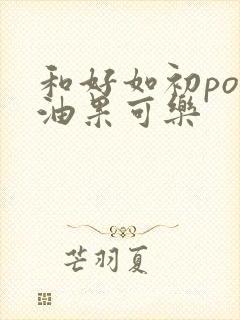 和好如初po
油果可樂
芒羽夏